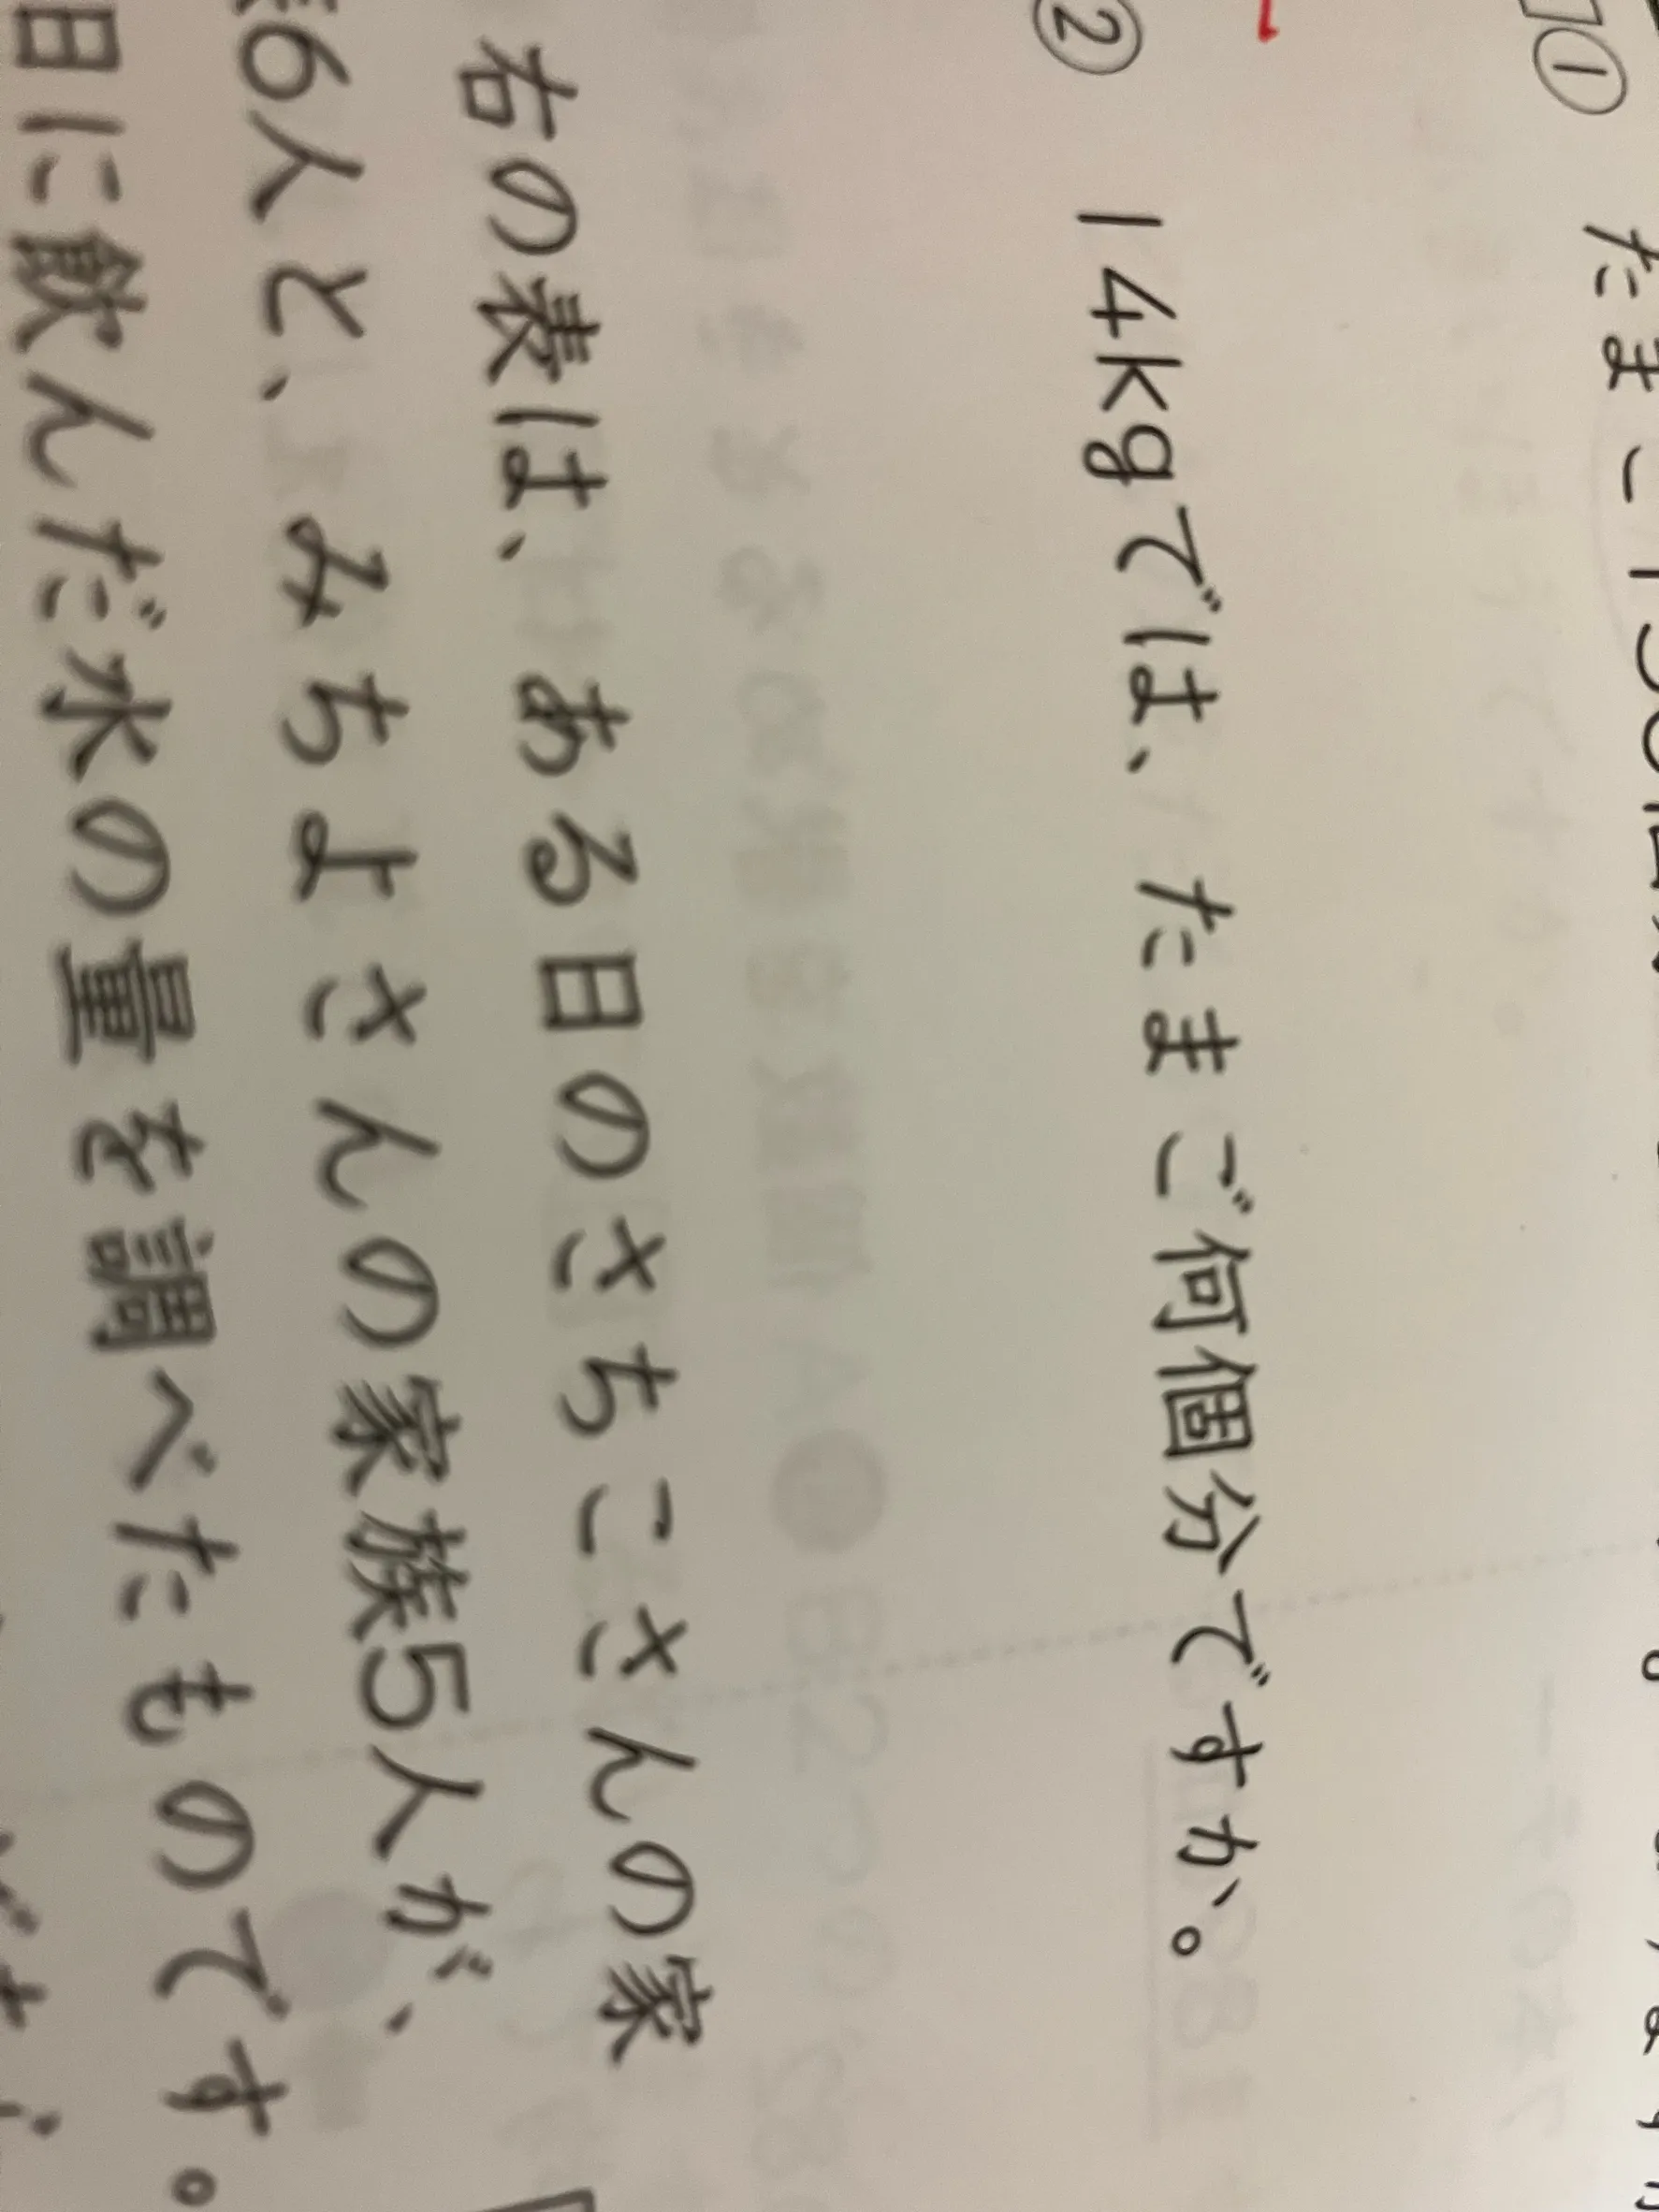 ① たまご150個
② 14kgでは、たまご何個分ですか。
右の表は、ある日のさちこさんの家
6人と、みちよさんの家族5人が、
日に飲んだ水の量を調べたものです。